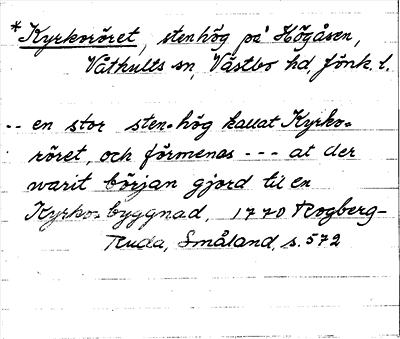 *Kyrkoröret, stenhög på Högåsen,
Våthults sn, Västbo hd, Jönk. l.
-- en stor sten-hög kallat Kyrko-
röret, och förmenas --- at der
warit början gjord til en
Kyrko-byggnad, 1770 Rogberg-
Ruda, Småland, s. 572